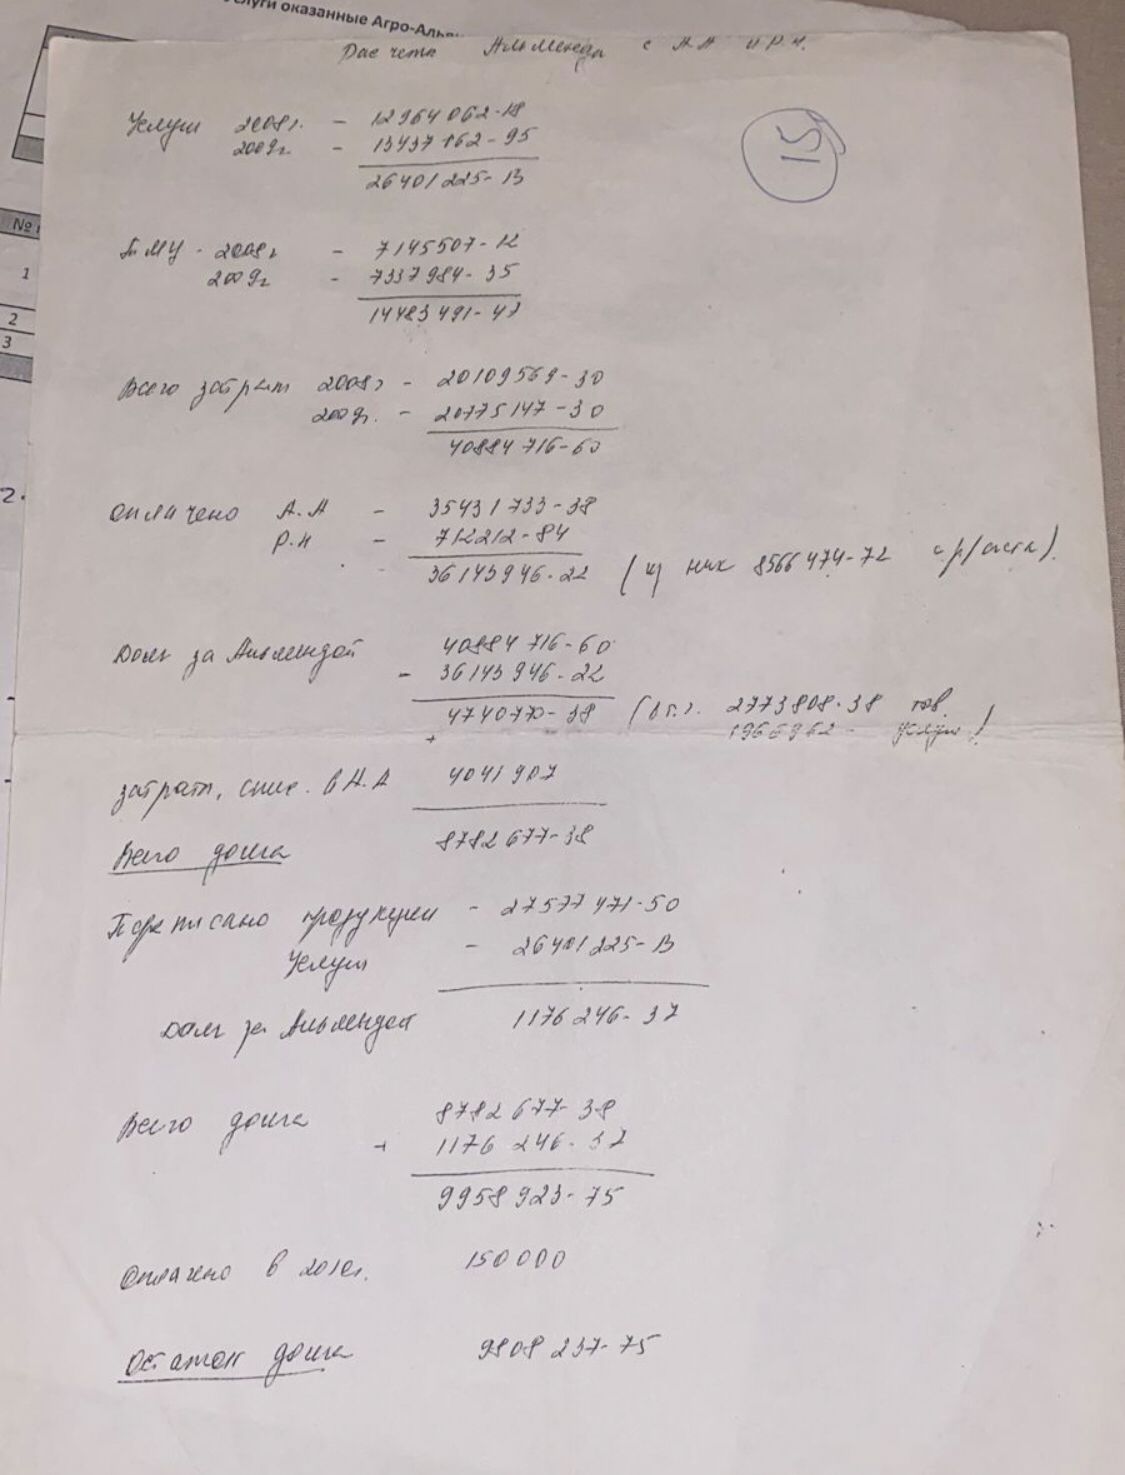 слуги оказанные Агро-Аль
№
1
2
3
2.
Расчеты Альменда с А.А и Р.Н.
15
Услуги 2008г. - 12964062-18
2009г - 13437162-95
26401225-13
ТМЦ - 2008г - 7145507-12
2009г - 7337984-35
14483491-47
Всего затрат 2008г - 20109569-30
2009г. - 20775147-30
40884716-60
Оплачено А.А - 35431733-38
Р.Н - 712212-84
36143946-22 (из них 8566474-72 с р/счета).
Долг за Альмендой 40884716-60
- 36143946-22
4740770-38 (в т.ч. 2773808-38 тов.
+ 1966962- услуги)
затраты, спис. в А.А 4041907
Всего долга 8782677-38
Переписано продукции - 27577471-50
Услуги - 26401225-13
Долг за Альмендой 1176246-37
Всего долга 8782677-38
+ 1176246-37
9958923-75
Оплачено в 2010г. 150000
Остаток долга 9808237-75